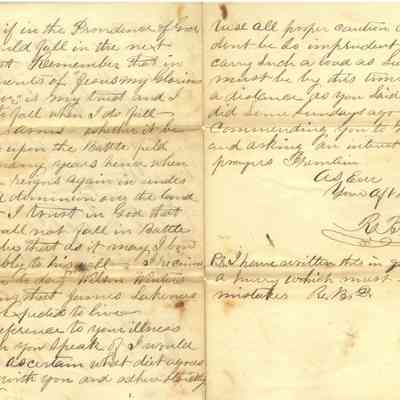 if in the Providence of God
uld fall in the next
Remember that in
merits of Jesus my Glorious
is my trust and I
fall when I do fall
arms whether it be
upon the Battle field
many years hence when
reigns again in undis
dominion over the land
I trust in God that
all not fall in Battle
that as it may I bow
bly to his will
to day Wilson Winters
ing that James Lakeness
expected to live
eference to your illness
you speak of I would
ascertain what diet agrees
with you and adhere strictly
use all proper caution a
dont be so imprudent
carry such a load as
must be by this time
a distance as you said
did some Sundays ago
Commending you to
and asking an interest
prayers I remain
As Ever
Your Aff
R. B.
P.S. I have written this in g
a hurry which must
mistakes R. B.